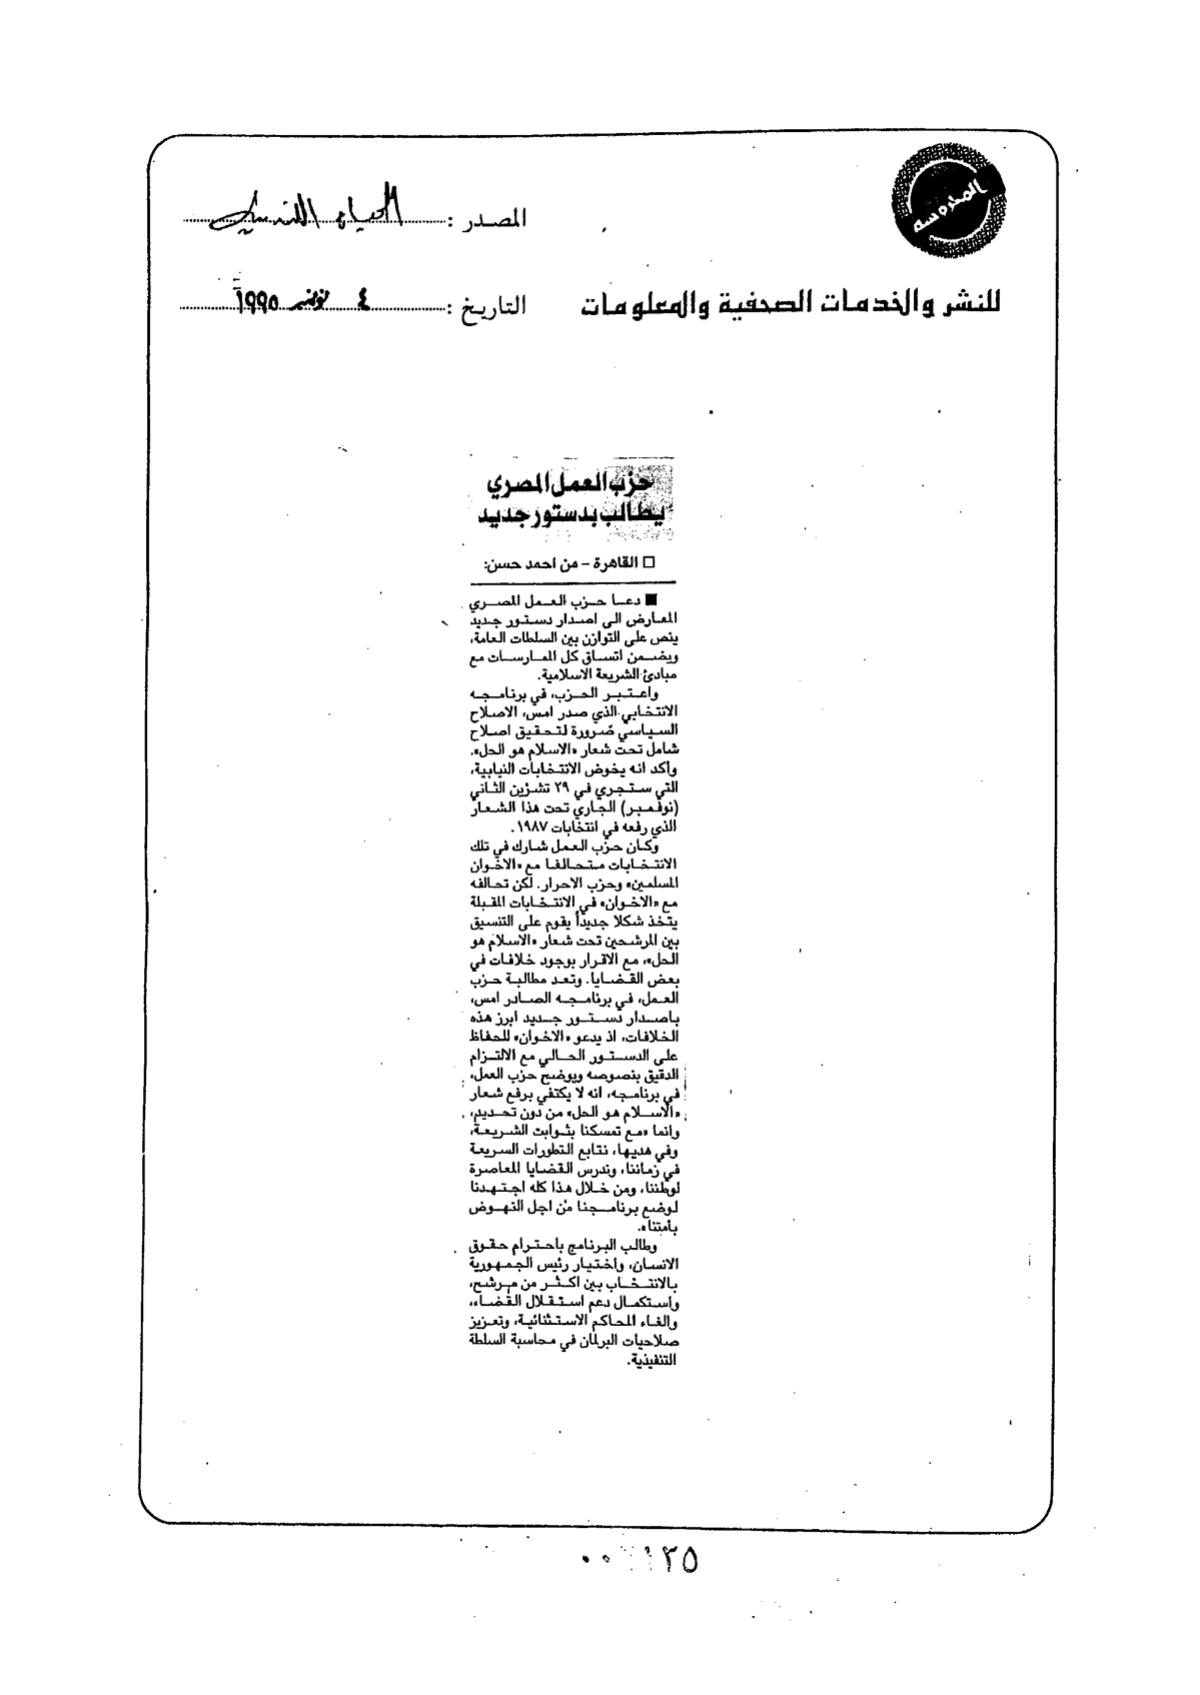 المحروسه
المصدر : الحياة اللندنية
للنشر والخدمات الصحفية والمعلومات
التاريخ : ٤ نوفمبر ١٩٩٥
حزب العمل المصري
يطالب بدستور جديد
□ القاهرة – من احمد حسن:
■ دعا حزب العمل المصري
المعارض الى اصدار دستور جديد
ينص على التوازن بين السلطات العامة،
ويضمن اتساق كل الممارسات مع
مبادئ الشريعة الاسلامية.
واعتبر الحزب، في برنامجه
الانتخابي الذي صدر امس، الاصلاح
السياسي ضرورة لتحقيق اصلاح
شامل تحت شعار «الاسلام هو الحل».
وأكد انه يخوض الانتخابات النيابية،
التي ستجري في ٢٩ تشرين الثاني
(نوفمبر) الجاري تحت هذا الشعار
الذي رفعه في انتخابات ١٩٨٧.
وكان حزب العمل شارك في تلك
الانتخابات متحالفا مع «الاخوان
المسلمين» وحزب الاحرار. لكن تحالفه
مع «الاخوان» في الانتخابات المقبلة
يتخذ شكلا جديداً يقوم على التنسيق
بين المرشحين تحت شعار «الاسلام هو
الحل»، مع الاقرار بوجود خلافات في
بعض القضايا. وتعد مطالبة حزب
العمل، في برنامجه الصادر امس،
باصدار دستور جديد ابرز هذه
الخلافات، اذ يدعو «الاخوان» للحفاظ
على الدستور الحالي مع الالتزام
الدقيق بنصوصه ويوضح حزب العمل،
في برنامجه، انه لا يكتفي برفع شعار
«الاسلام هو الحل» من دون تحديد،
وانما «مع تمسكنا بثوابت الشريعة،
وفي هديها، نتابع التطورات السريعة
في زماننا، وندرس القضايا المعاصرة
لوطننا، ومن خلال هذا كله اجتهدنا
لوضع برنامجنا من اجل النهوض
بأمتنا».
وطالب البرنامج باحترام حقوق
الانسان، واختيار رئيس الجمهورية
بالانتخاب بين اكثر من مرشح،
واستكمال دعم استقلال القضاء،
والغاء المحاكم الاستثنائية، وتعزيز
صلاحيات البرلمان في محاسبة السلطة
التنفيذية.
١٢٥